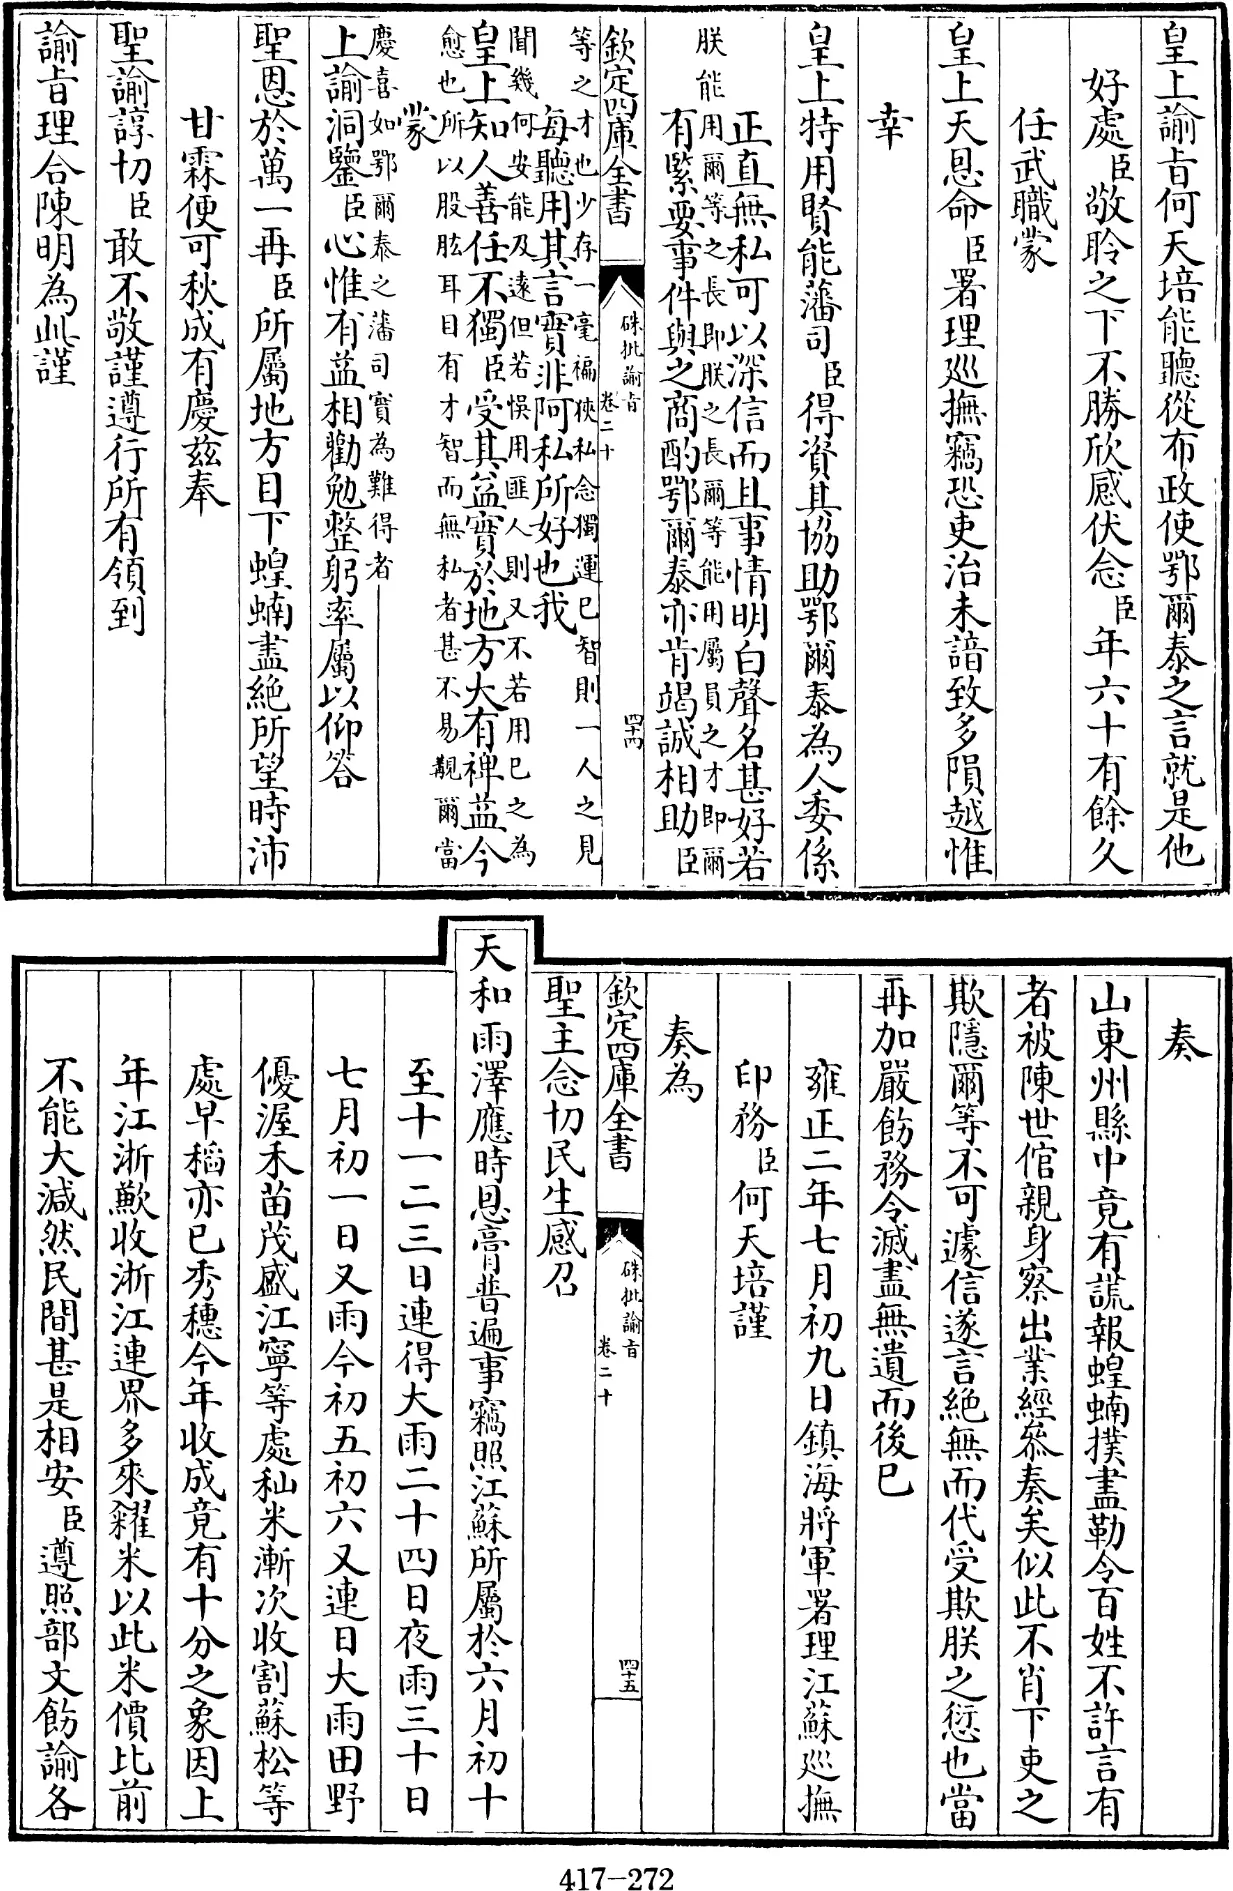 皇上諭旨何天培能聽從布政使鄂爾泰之言就是他
好處臣敬聆之下不勝欣感伏念臣年六十有餘久
任武職蒙
皇上天恩命臣署理巡撫竊恐吏治未諳致多隕越惟
幸
皇上特用賢能藩司臣得資其協助鄂爾泰為人委係
正直無私可以深信而且事情明白聲名甚好若
朕能用爾等之長即朕之長爾等能用屬員之才即爾
有緊要事件與之商酌鄂爾泰亦肯竭誠相助臣
欽定四庫全書
硃批諭旨
卷二十
四十四
等之才也少存一毫褊狹私念獨運己智則一人之見
每聽用其言實非阿私所好也我
聞幾何安能及遠但若悞用匪人則又不若用己之為
皇上知人善任不獨臣受其益實於地方大有裨益今
愈也所以股肱耳目有才智而無私者甚不易覯爾當
蒙
慶喜如鄂爾泰之藩司實為難得者
上諭洞鑒臣心惟有益相勸勉整躬率屬以仰答
聖恩於萬一再臣所屬地方目下蝗蝻盡絶所望時沛
甘霖便可秋成有慶茲奉
聖諭諄切臣敢不敬謹遵行所有領到
諭旨理合陳明為此謹
奏
山東州縣中竟有謊報蝗蝻撲盡勒令百姓不許言有
者被陳世倌親身察出業經叅奏矣似此不肖下吏之
欺隱爾等不可遽信遂言絶無而代受欺朕之愆也當
再加嚴飭務令滅盡無遺而後已
雍正二年七月初九日鎮海將軍署理江蘇巡撫
印務臣何天培謹
奏為
欽定四庫全書
硃批諭旨
卷二十
四十五
聖主念切民生感召
天和雨澤應時恩膏普遍事竊照江蘇所屬於六月初十
至十一二三日連得大雨二十四日夜雨三十日
七月初一日又雨今初五初六又連日大雨田野
優渥禾苗茂盛江寧等處秈米漸次收割蘇松等
處早稻亦已秀穗今年收成竟有十分之象因上
年江浙歉收浙江連界多來糴米以此米價比前
不能大減然民間甚是相安臣遵照部文飭諭各
417-272